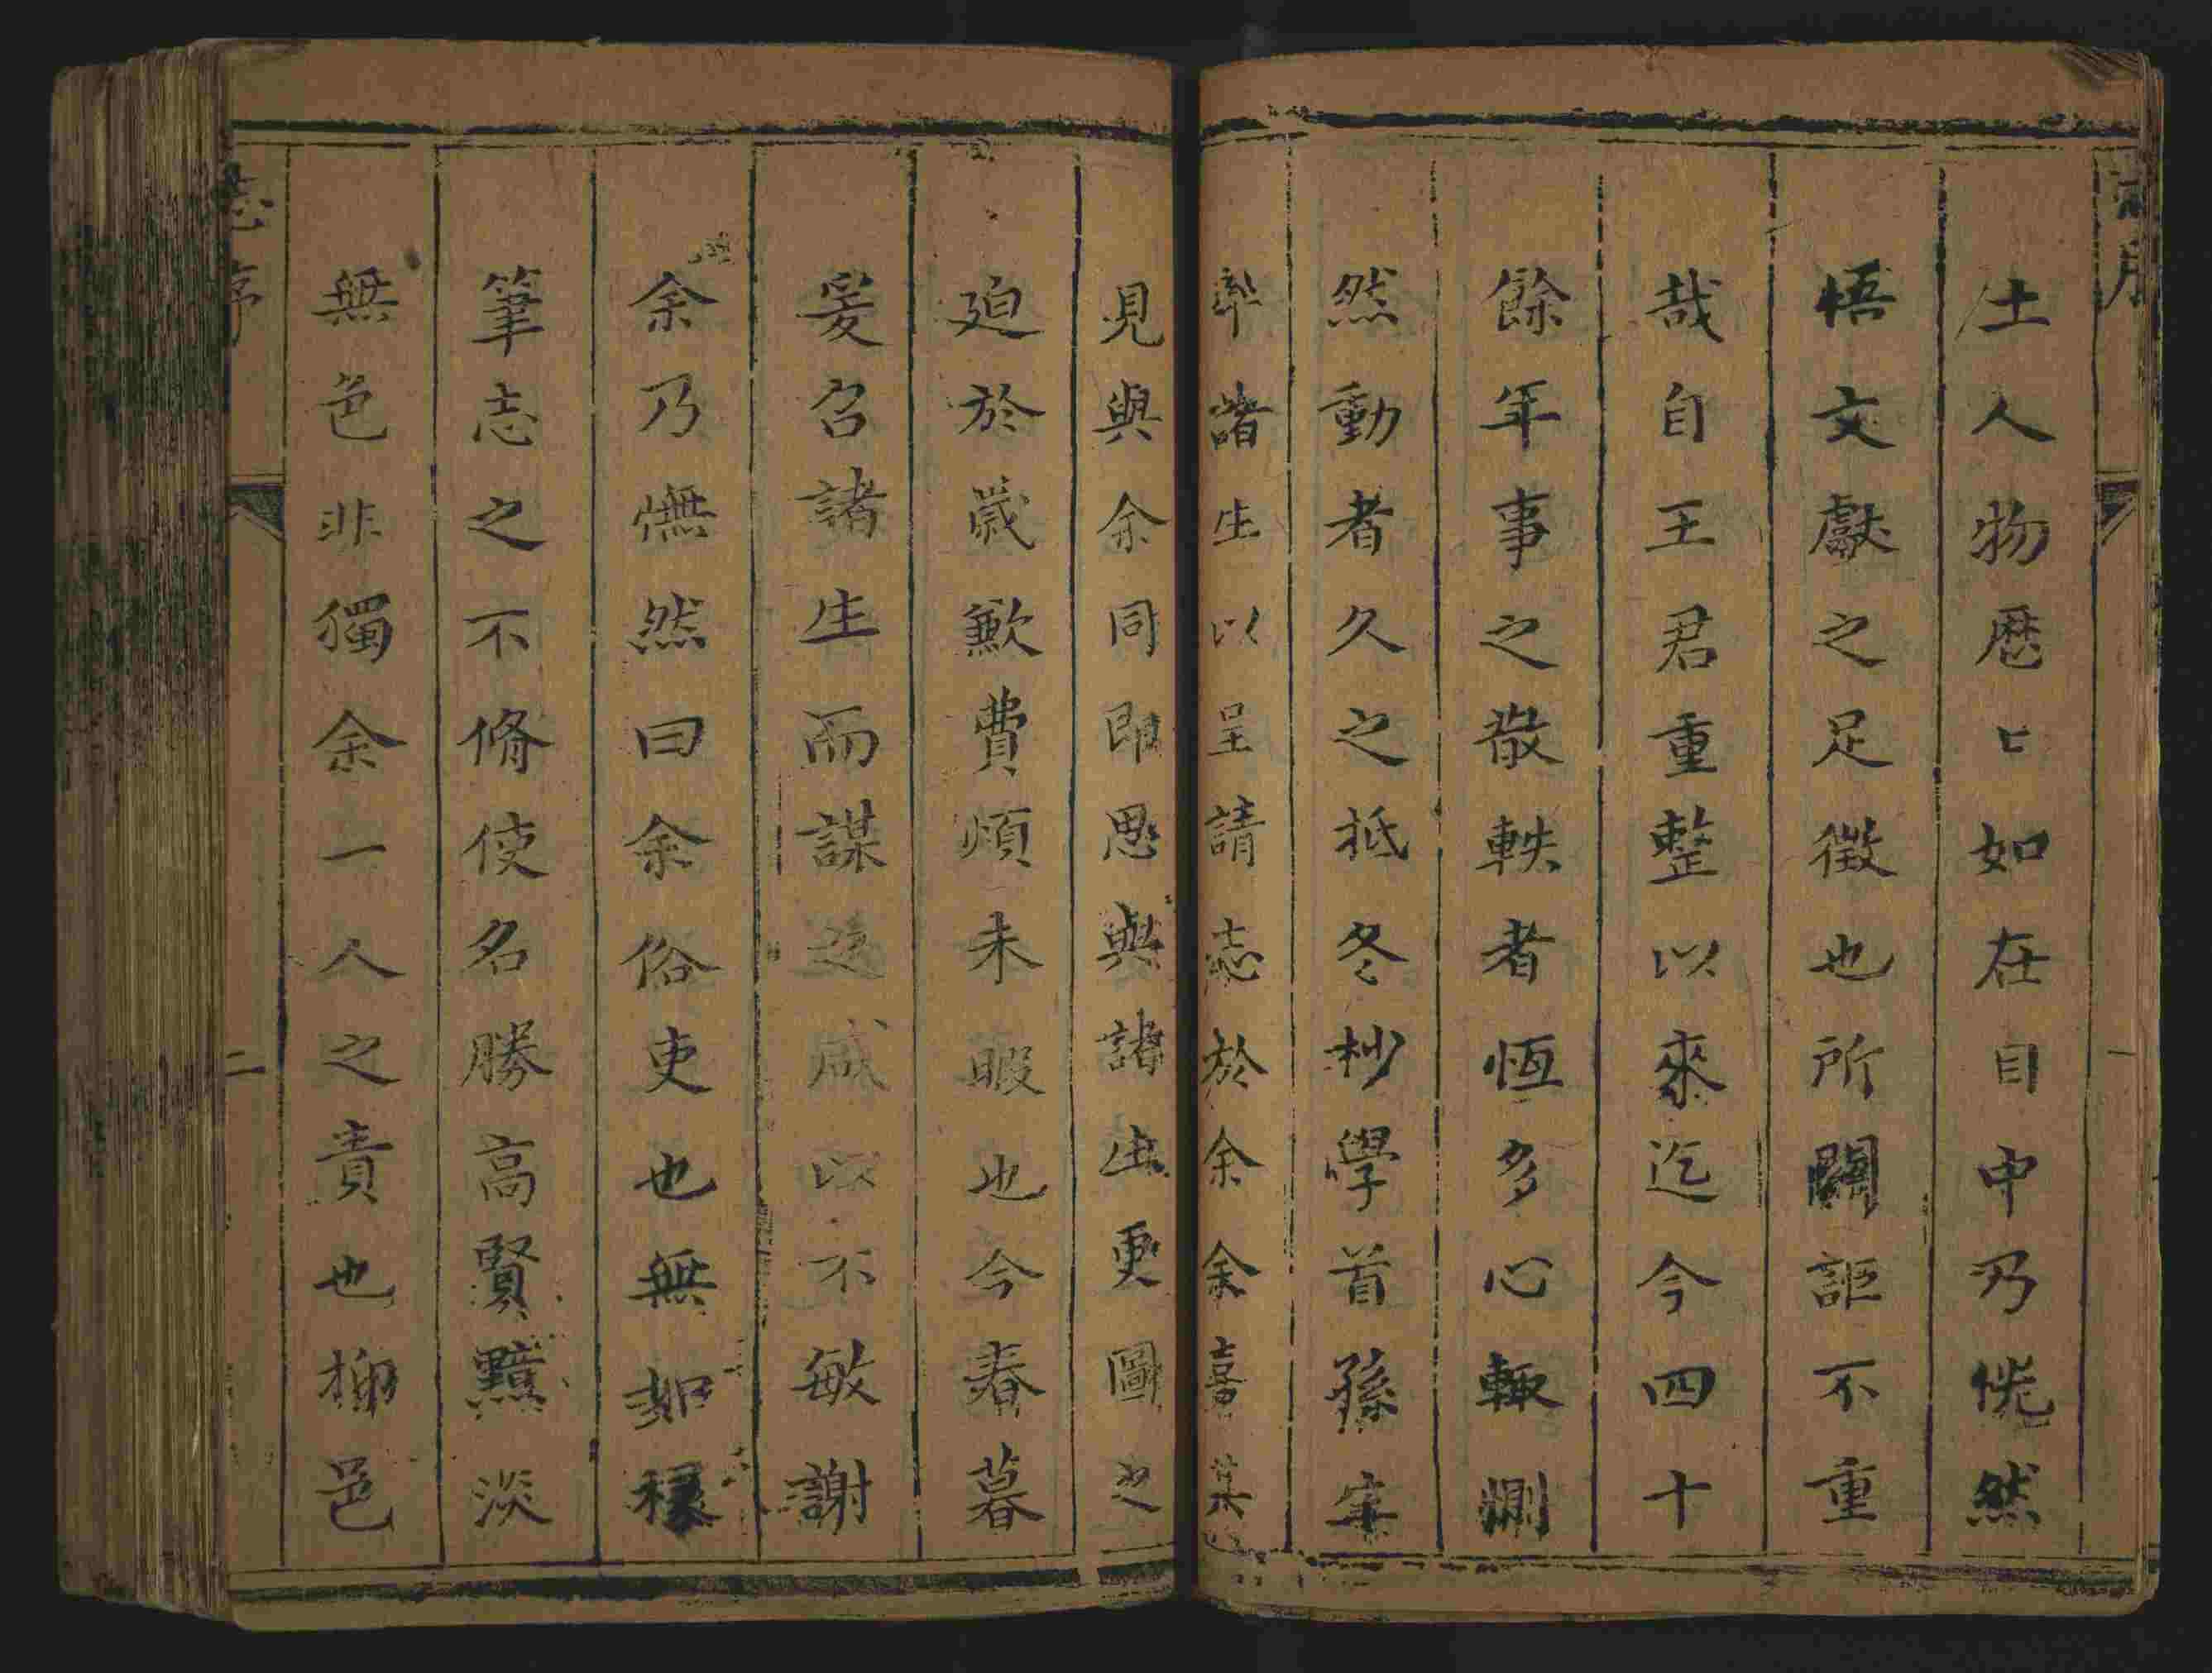 土人物歷〻如在目中乃恍然
悟文獻之足徵也所闗詎不重
哉自王君重整以來迄今四十
餘年事之散軼者恆多心輙惻
然動者久之抵冬杪學首孫宷
率諸生以呈請志於余余喜其
見與余同即思與諸生更圖之
廹於歲歉費煩未暇也今春暮
爰召諸生而謀之咸以不敏謝
余乃憮然曰余俗吏也無如穣
筆志之不脩使名勝高賢黯淡
無色非獨余一人之責也抑邑
志序
二
一